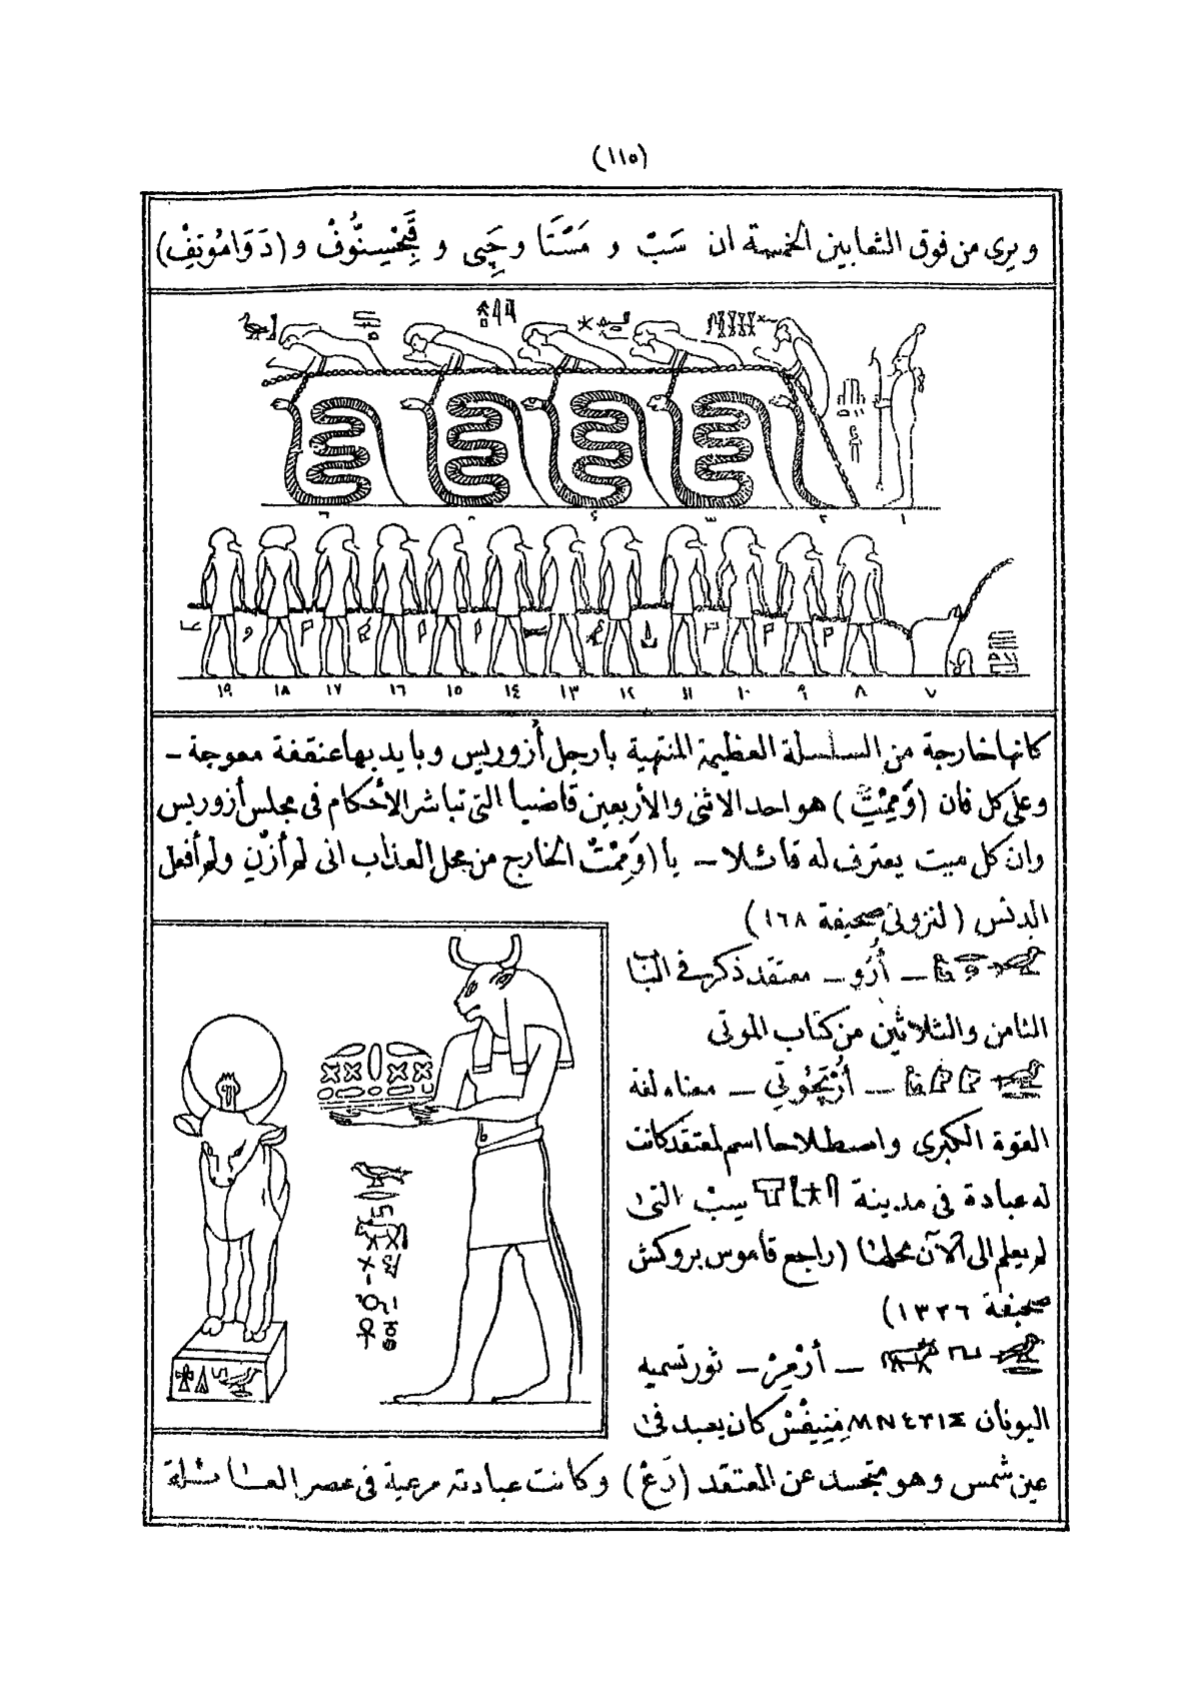 (١١٥)
ويرى من فوق الثعابين الخمسة ان سَبْ و مَسْتَا وحَپِى و قِبَحْسِنُّوفْ و (دَوَامُوتِفْ)
٦ ٥ ٤ ٣ ٢ ١
١٩ ١٨ ١٧ ١٦ ١٥ ١٤ ١٣ ١٢ ١١ ١٠ ٩ ٨ ٧
كانها خارجة من السلسلة العظيمة المنتهية بارجل أزوريس وبايديها عنقفة معوجة ـ
وعلى كل فان (وَمِمْتِى) هو احد الاثنى والأربعين قاضيا التى تباشر الأحكام فى مجلس أزوريس
وان كل ميت يعترف له قائلا ـ يا (وَمِمْتْ الخارج من محل العذاب انى لم أزنِ ولم أفعل
الدنس (لنزونى صحيفة ١٦٨)
ـ أُرُو ـ معتقد ذكر فى الباب
الثامن والثلاثين من كتاب الموتى
ـ ـ معناه لغة
القوة الكبرى واصطلاحا اسم لمعتقد كانت
له عبادة فى مدينة سِبْ التى
لم يعلم الى الآن محلها (راجع قاموس بروكش
صحيفة ١٣٢٦)
ـ أرْمِرْ ـ ثور تسميه
اليونان مِنِيفْسْ كان يعبد فى
عين شمس وهو متجسد عن المعتقد (رَعْ) وكانت عبادته مرعية فى عصر العائلة